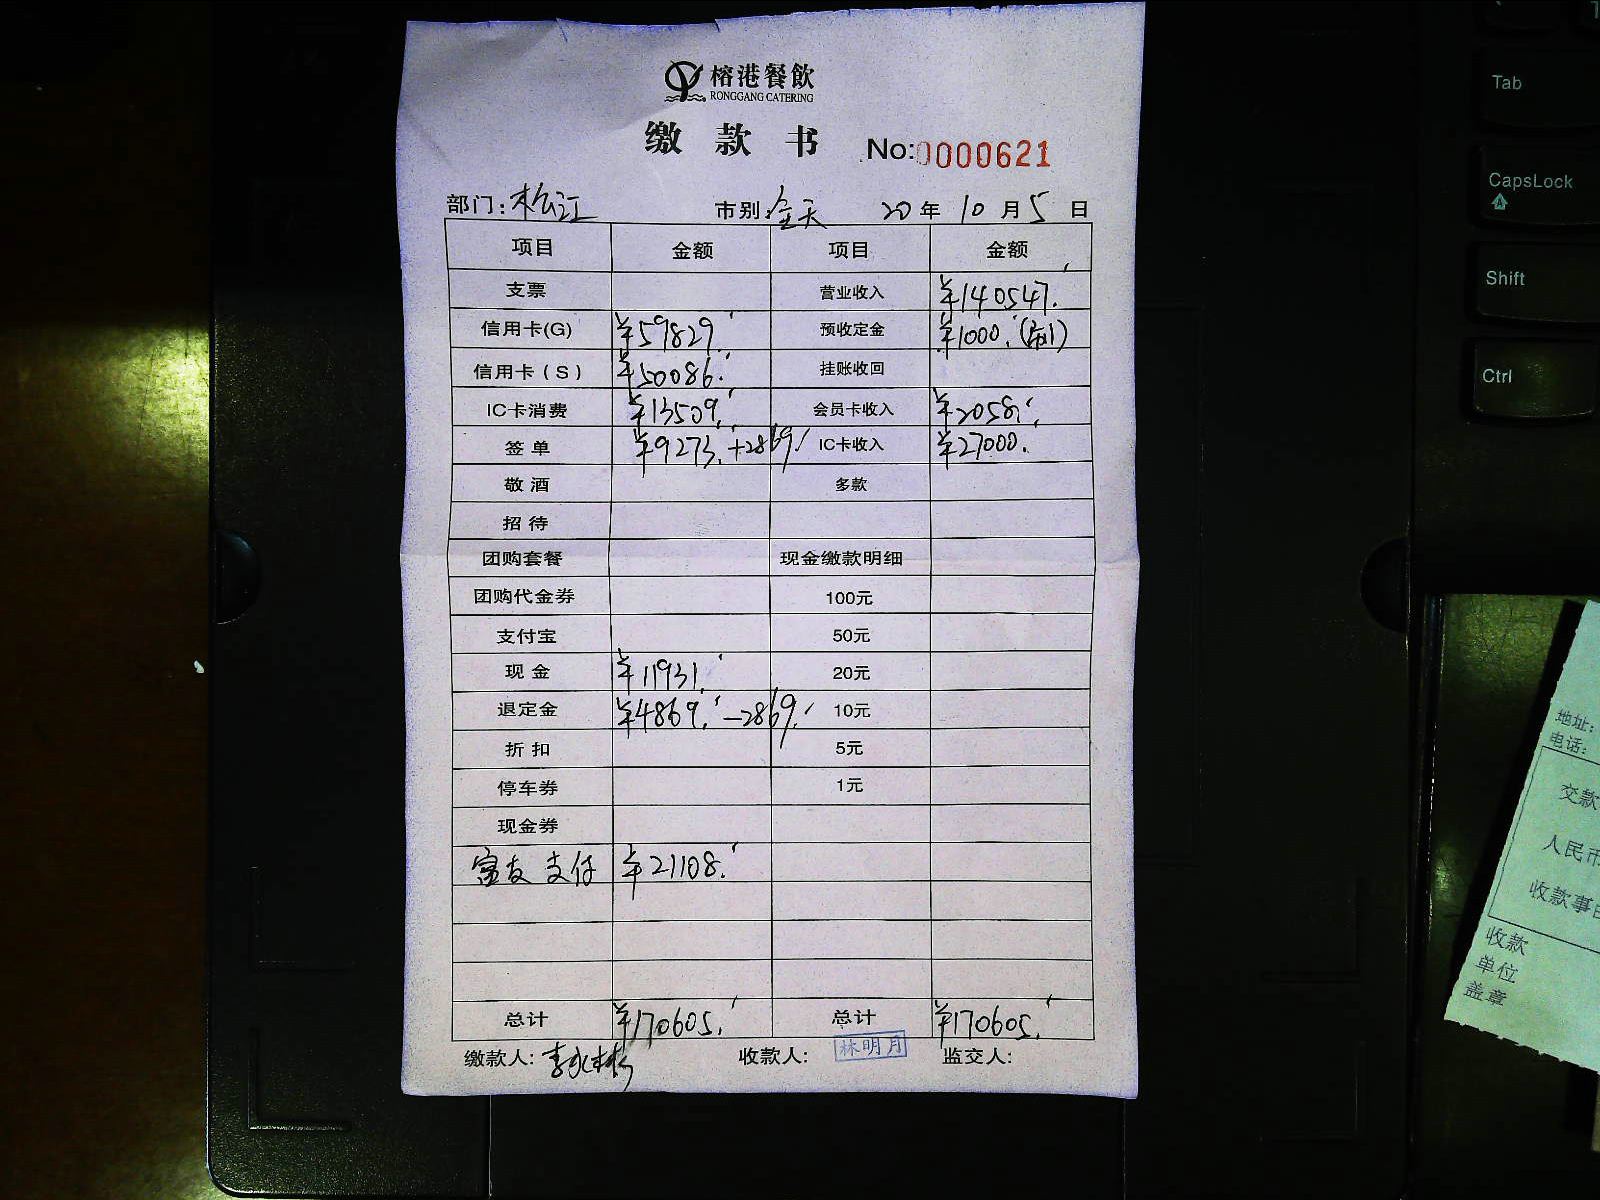 榕港餐飲
RONGGANG CATERING
缴款书 No:0000621
部门: 松江 市别: 全天 20年10月5日
项目 金额 项目 金额
支票 营业收入 ¥140547.
信用卡(G) ¥59829. 预收定金 ¥1000.
信用卡(S) ¥50086. 挂账收回
IC卡消费 ¥13509. 会员卡收入 ¥2058.
签单 ¥9273.+2869 IC卡收入 ¥27000.
敬酒 多款
招待
团购套餐 现金缴款明细
团购代金券 100元
支付宝 50元
现金 ¥11931. 20元
退定金 ¥4869.-2869. 10元
折扣 5元
停车券 1元
现金券
富友支付 ¥21108.
总计 ¥170605. 总计 ¥170605.
缴款人: 收款人: 林明月 监交人:
Tab
CapsLock
Shift
Ctrl
地址:
电话:
交款
人民币
收款事由
收款
单位
盖章